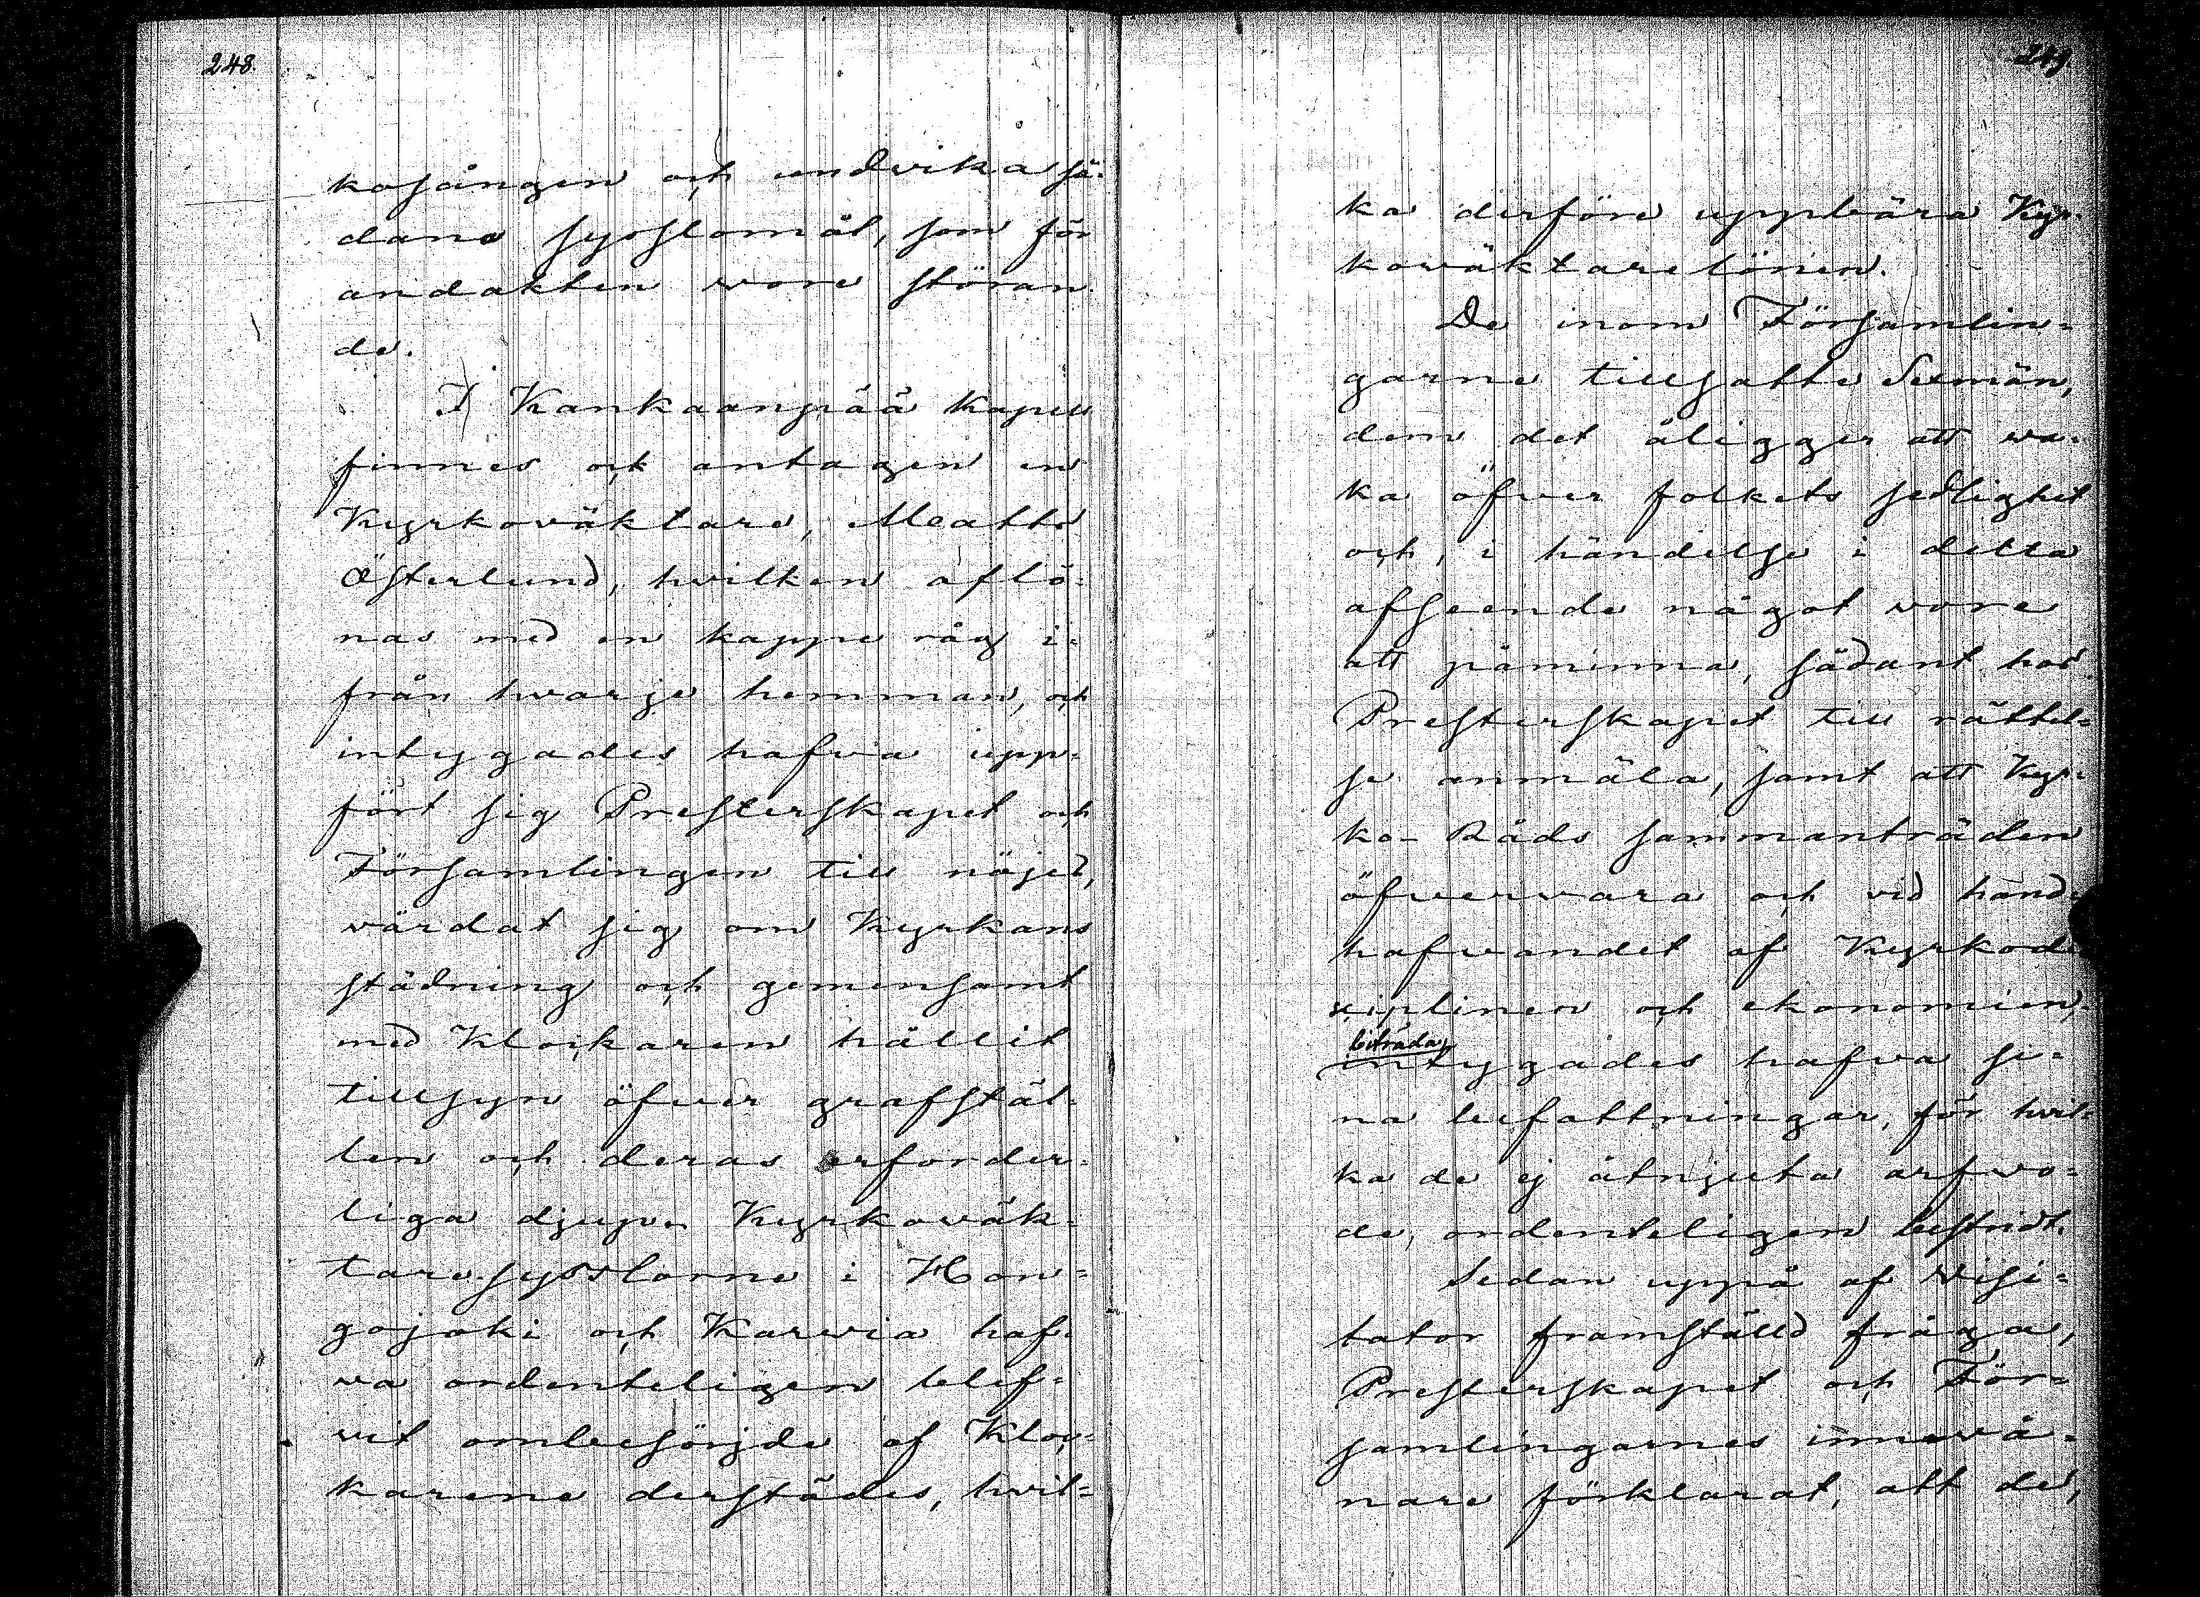 248.
kosången och undvika så-
dane sysslomål, som för
andakten vore störan-
de.
I Kankaanpää Kapell
finnes ock antagen en
Kyrkoväktare, Matts
Österlund, hvilken aflö-
nas med en kappe råg i-
från hvarje hemman, och
intygades hafva upp-
fört sig Presterskapet och
Församlingen till nöjes,
vårdat sig om Kyrkans
städning och gemensamt
med Klockaren hållit
tillsyn öfver grafstäl-
len och deras erforder-
liga djup. Kyrkoväk-
tare-sysslorne i Hon-
gojoki och Karvia haf-
va ordenteligen blef-
vit ombesörjde af Kloc-
karene derstädes, hvil-
249.
ka derföre uppbära Kyr-
koväktare lönen.
De inom Församlin-
garne tillsatte Sexmän,
dem det åligger att va-
ka öfver folkets sedlighet
och, i händelse i detta
afseende något vore
att påminna, sådant hos
Presterskapet till rättel-
se anmäla, samt att Kyr-
ko-Råds sammanträden
öfvervara och vid hand-
hafvandet af Kyrkodi
ciplinen och ekonomien
biträda,
intygades hafva si-
na befattningar, för hvil-
ka de ej åtnjuta arfvo-
de, ordenteligen bestridt.
Sedan uppå af Visi-
tator framställd fråga,
Presterskapet och För-
samlingarnes innevå-
nare förklarat, att de,